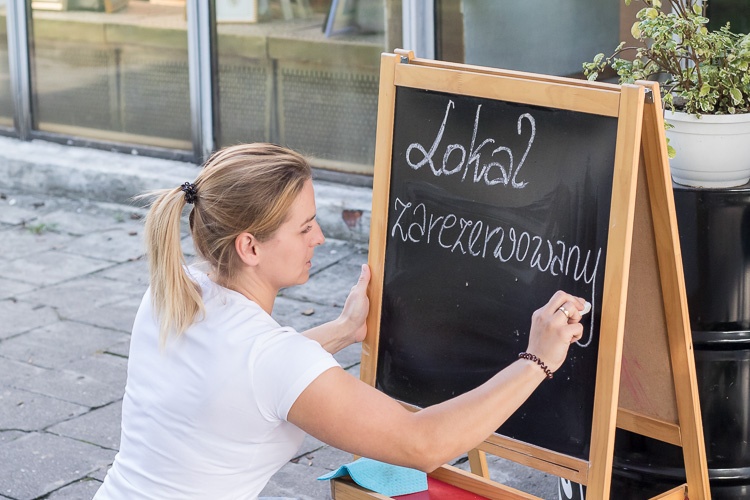 Lokal
zarezerwowany